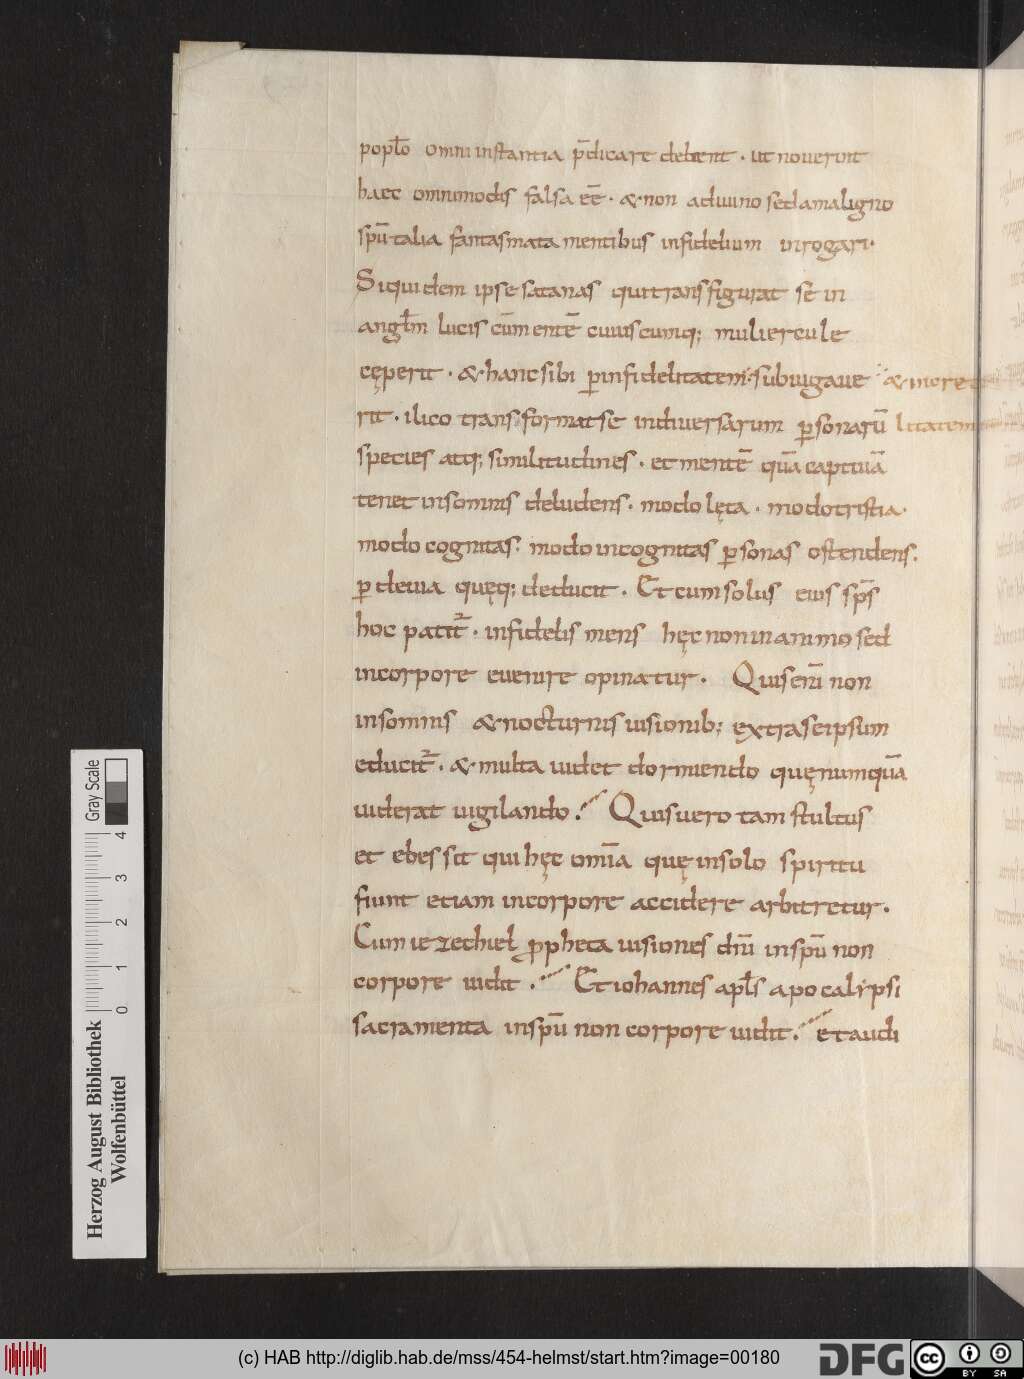 popl̄o omni instantia p̄dicare debent · ut noverint
haec omnimodis falsa eē · & non a divino sed a maligno
spū talia fantasmata mentibus infidelium inrogari ·
Siquidem ipse satanas qui transfigurat se in
angl̄m lucis cūm mentē cuiuscumq; muliercule
cęperit · & hanc sibi ꝑ infidelitatem · subiugave & incredu
rit · ilico transformat se in diversarum ꝑsonarū litatem
species atq; similitudines · et mentē quā captivā
tenet in somnis deludens · modo lęta · modo tristia ·
modo cognitas · modo incognitas ꝑsonas ostendens ·
ꝑ devia quęq; deducit · Et cum solus eius sps̄
hoc patit᷑ · infidelis mens hęc non in animo sed
in corpore evenire opinatur · Quis eni̅ non
in somnis & nocturnis visionib; extra se ipsum
educit᷑ · & multa videt dormiendo quę numquā
viderat vigilando · Quis vero tam stultus
et ebes sit qui hęc omīa quę in solo spiritu
fiunt etiam in corpore accidere arbitretur ·
Cum iezechiel ꝓpheta visiones dnī in spū non
corpore vidit · Et iohannes apl̄s apocalipsi
sacramenta in spū non corpore vidit · et audi
Gray Scale
0 1 2 3 4
Herzog August Bibliothek
Wolfenbüttel
(c) HAB http://diglib.hab.de/mss/454-helmst/start.htm?image=00180
DFG
CC BY SA